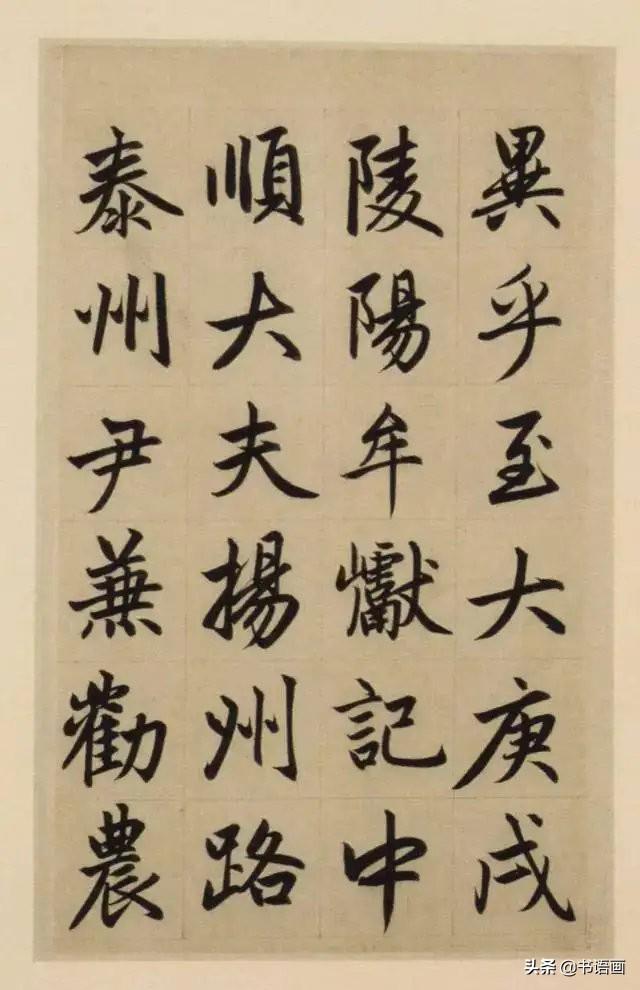 異乎至大庚戌
陵陽牟巘記中
順大夫揚州路
泰州尹兼勸農
头条 @书语画